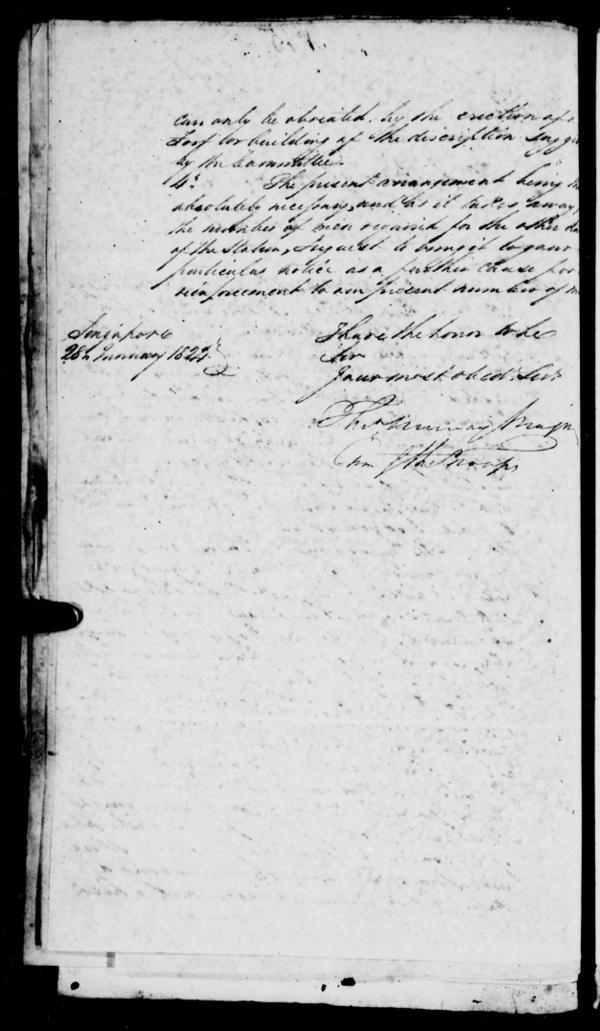 can only be obviated by the erection of a
Fort or building of the discription sugg
by the Committee.
4th The present arrangement being
absolutely necessary, and as it takes away
the number of men required for the other
of the Station, I request to bring it to your
particular notice as a further cause for
reinforcement to our present number of
Singapore
28th January 1824
I have the honor to be
Sir
Your most obed. Servt
Murray Major
Com of the Troops